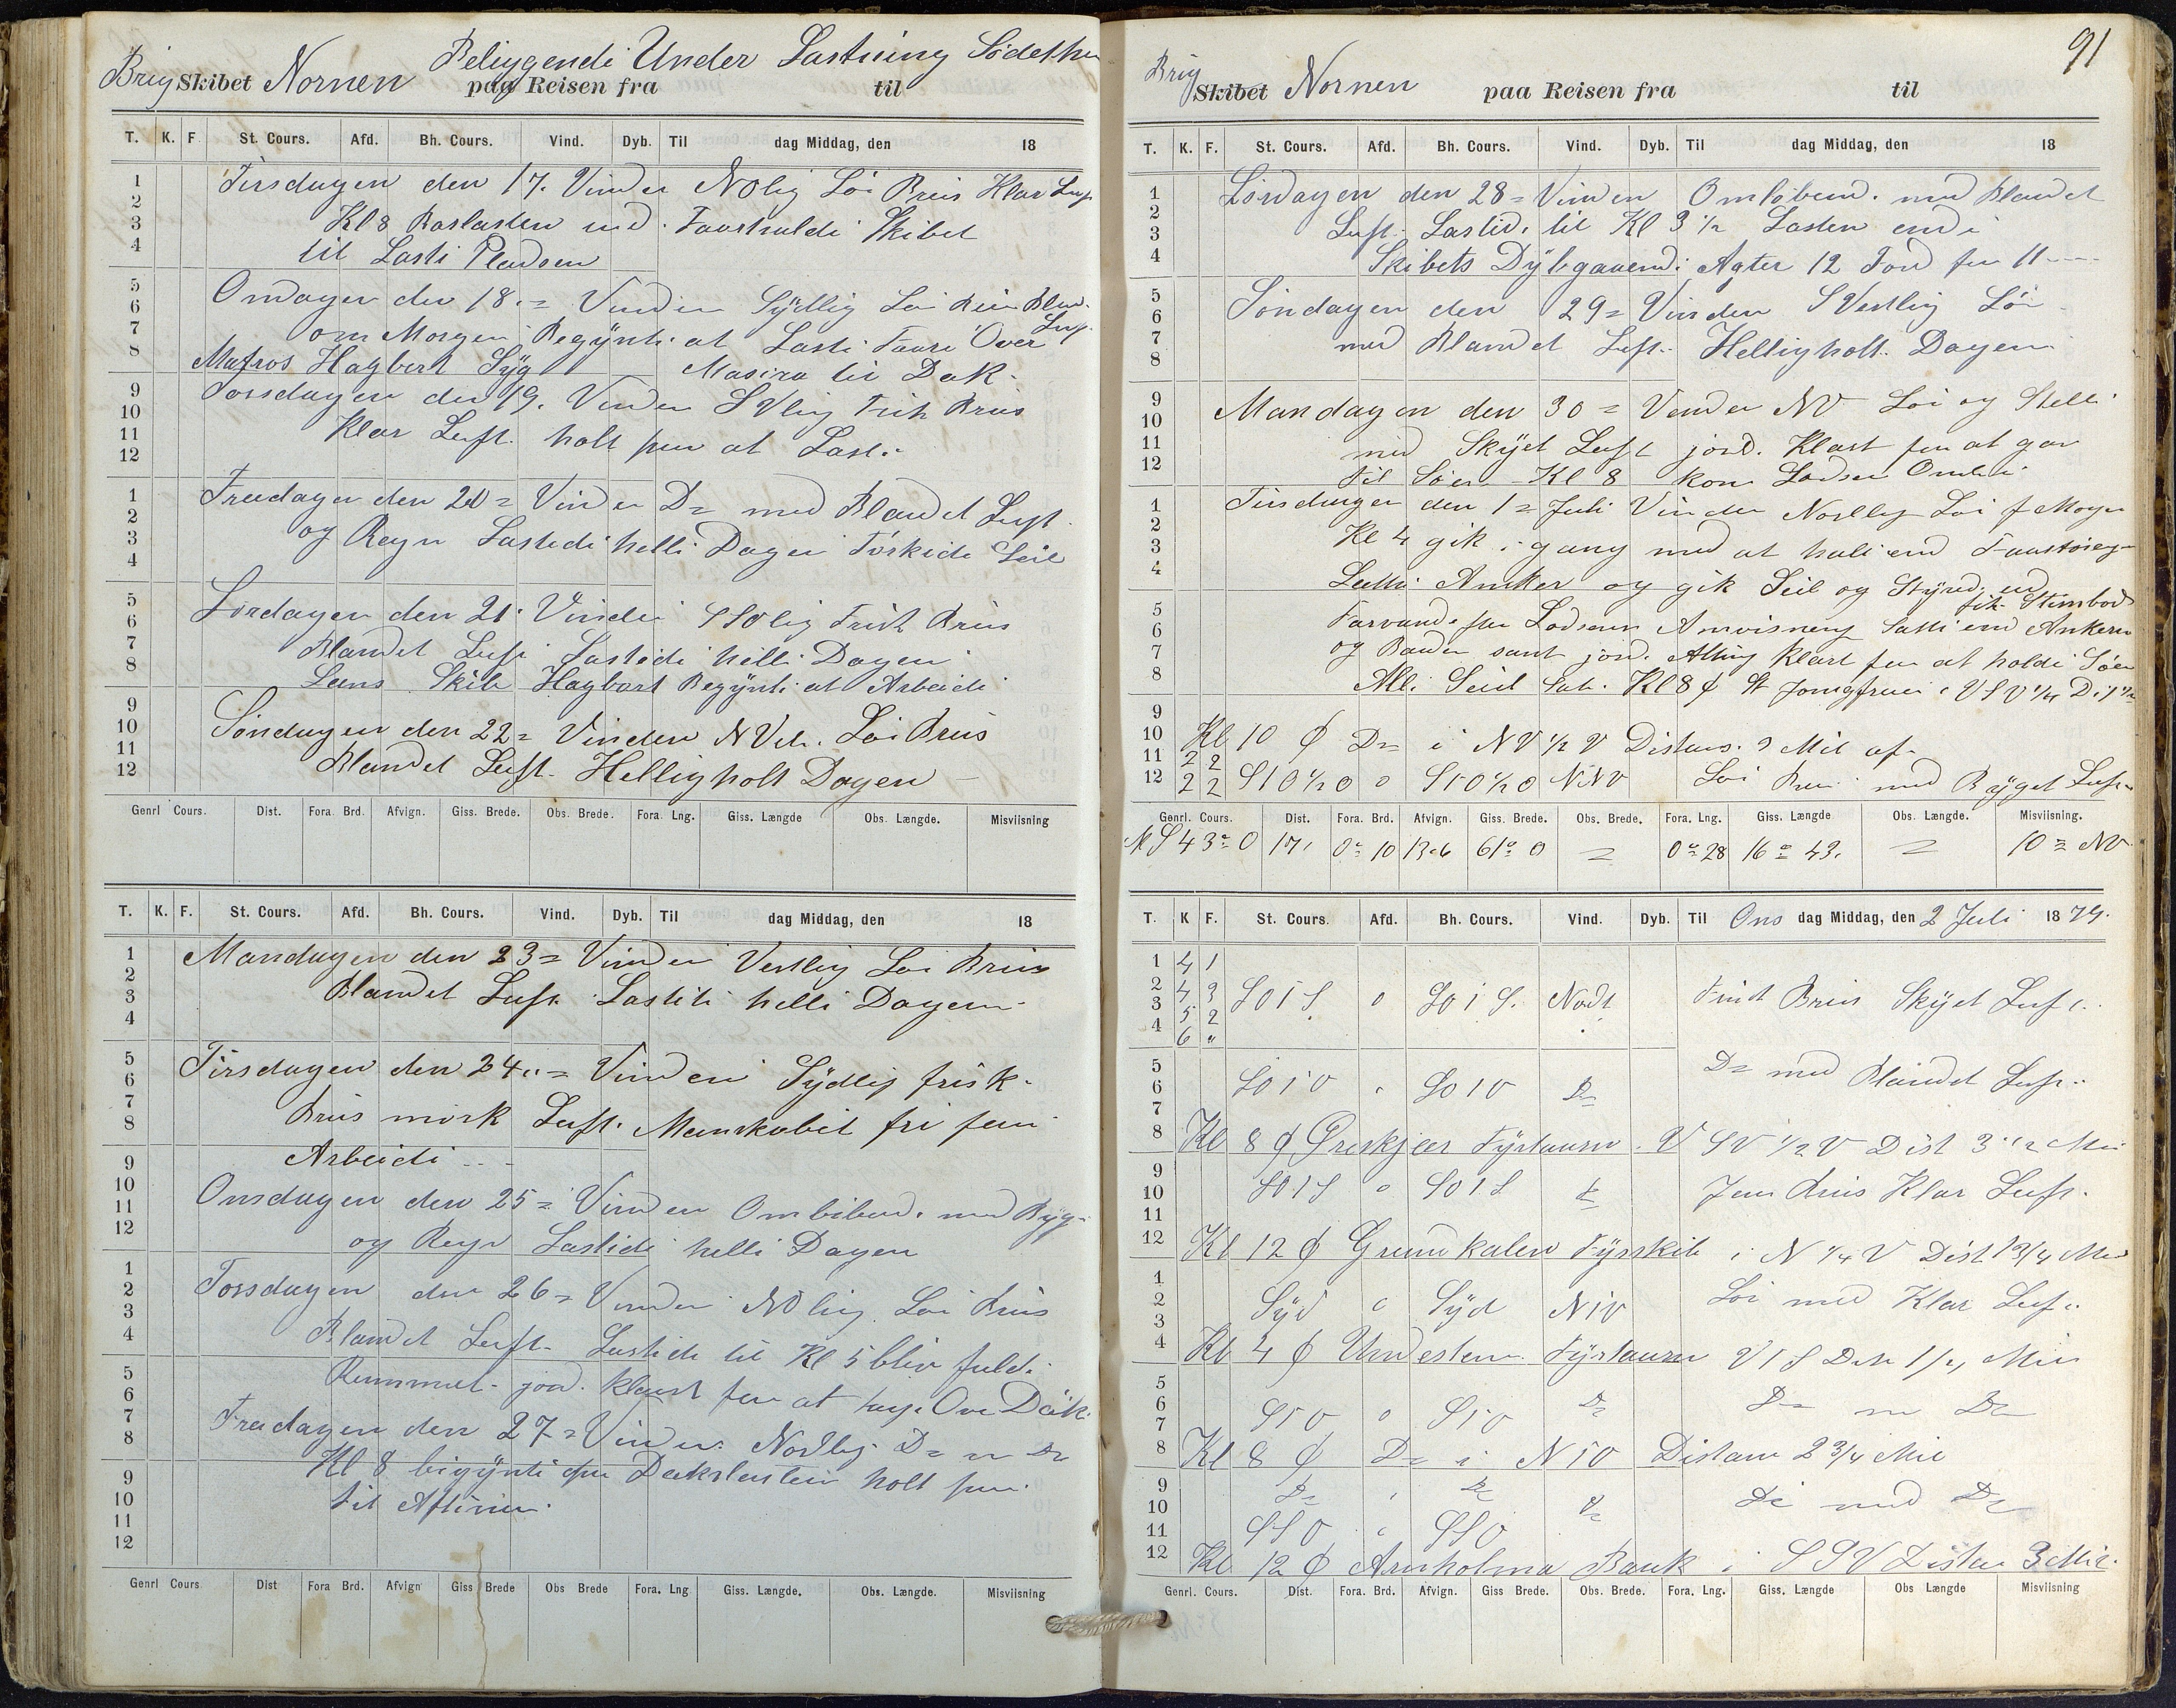 Brig Skibet Nornen Beliggendi Under Lastning Södethn
paa Reisen fra til
T. K. F. St. Cours. Afd. Bh. Cours. Vind. Dyb. Til dag Middag, den 18
Tirsdagen den 17. Vinden NOlig Löi Briis Klar Luft
Kl 8 Barlasten ud. Faarhaldi Skibet
til Lasti Pladsen
Onsdagen den 18.= Vinden Sÿdlig Löi Briis Bland. Luft
om Morgen Begÿnti at Lasti Faare Over
Matros Hagbert Sÿg Masina til Dæk.
Torsdagen den 19. Vinden SVlig Frisk Briis
Klar Luft. holt paa at Last.
Freedagen den 20= Vinden D= med Blandet Luft
og Regn Lastedi helli Dagen Törkede Seil
Lördagen den 21. Vinden SSOlig Frisk Briis
Blandet Luft Lastedi helli Dagen
Lens Skib Hagbart Begÿnti at Arbeidi
Söndagen den 22= Vinden NVsl. Löi Briis
Blandet Luft. Hellig holt Dagen
Genrl Cours. Dist. Fora. Brd. Afvign. Giss. Brede. Obs. Brede. Fora. Lng. Giss. Længde Obs. Længde. Misviisning
T. K. F. St. Cours. Afd. Bh. Cours. Vind. Dyb. Til dag Middag, den 18
Mandagen den 23= Vinden Vestlig Löi Briis
Blandet Luft Lastiti helli Dagen
Tirsdagen den 24.= Vinden Sÿdlig frisk
Briis mörk Luft. Manskabit fri fra
Arbeidi
Onsdagen den 25= Vinden Omlöbend. med Bÿg
og Regn Lastidi helli Dagen
Torsdagen den 26= Vinden NOlig Löi Briis
Blandet Luft. Lastidi til Kl 5 blev fuldi
Rummet. jord. klart for at tage Over Dæk.
Freedagen den 27= Vinden Nordlig. D= m D=
Kl 8 bigÿnti paa Dækslasten holt paa
til Aftinen.
Genrl Cours Dist Fora Brd. Afvign Giss Brede Obs Brede Fora. Lng Giss. Længde. Obs. Længde. Misviisning
91
Brig Skibet Nornen paa Reisen fra til
T. K. F. St. Cours. Afd. Bh. Cours. Vind. Dyb. Til dag Middag, den 18
Lördagen den 28= Vinden Omlöbend. med Blandet
Luft. Lastid. til Kl 3 1/2 Lasten endi
Skibets Dÿbgaaend: Agter 12 Fod for 11
Söndagen den 29= Vinden SVestlig Löi
med Blandet Luft. Hellig holt Dagen
Mandagen den 30= Vinden NV Löi og Stelli
med Skÿet Luft jord. Klart for at gaa
til Söen Kl 8 kom Lodsen Ombor
Tirsdagen den 1= Juli Vinden Nordlig Löi f Morgen
Kl 4 gik i gang med at hali ind Faastöieg
Letti Anker og gik Seil og Stÿred ud
fik Stimbod
Farvande for Lodsens Anvisning Satti ind Ankern
og Baaden samt jord. Alting Klart for at holdi Söen
All. Seil Sat. Kl 8 ₵ St Jomgfruen i VSV 1/4 D: 1 1/2
Kl 10 ₵ D= i NV 1/2 V Distans. 3 Mil af
2 2
2 2 S10 1/2 O o S10 1/2 O NNV Löi Briis med Bÿget Luft
Genrl. Cours. Dist. Fora. Brd. Afvign. Giss. Brede. Obs. Brede. Fora. Lng. Giss. Længde Obs. Længde. Misviisning.
S 43° O 17, 0° 10 13.6 61° 0 = 0° 28 16° 43. = 10= NV
T. K F. St. Cours. Afd. Bh. Cours. Vind. Dyb. Til Ons dag Middag, den 2 Juli 1879.
4 1
4 3 SO1S o SO1S. Nodt Frist Briis Skÿet Luft.
5 2
6 "
SO1O SO1O D= D= med Blandet Luft.
Kl 8 ₵ Öreskjær Fÿrtaarn V SV 1/2 V Dist 3 1/2 Mil
SO1S o SO1S D= Jen Briis Klar Luft.
Kl 12 ₵ Grundkalen Fÿrskib i N 1/4 V Dist 1 3/4 Mil
Sÿd o Sÿd N1V Löi med Klar Luft
Kl 4 ₵ Understen Fÿrtaarn V1S Dist 1 1/4 Mil
S1O o S1O D= D= m D=
Kl 8 ₵ D= i N1O Distans 2 3/4 Mil
D= D= D= D= med D=
SSO SSO
Kl 12 ₵ Arnholma Baak i SSV Distans 3 Mil.
Genrl. Cours. Dist. Fora. Brd. Afvign. Giss Brede. Obs. Brede. Fora. Lng. Giss. Længde Obs Længde Misviisning